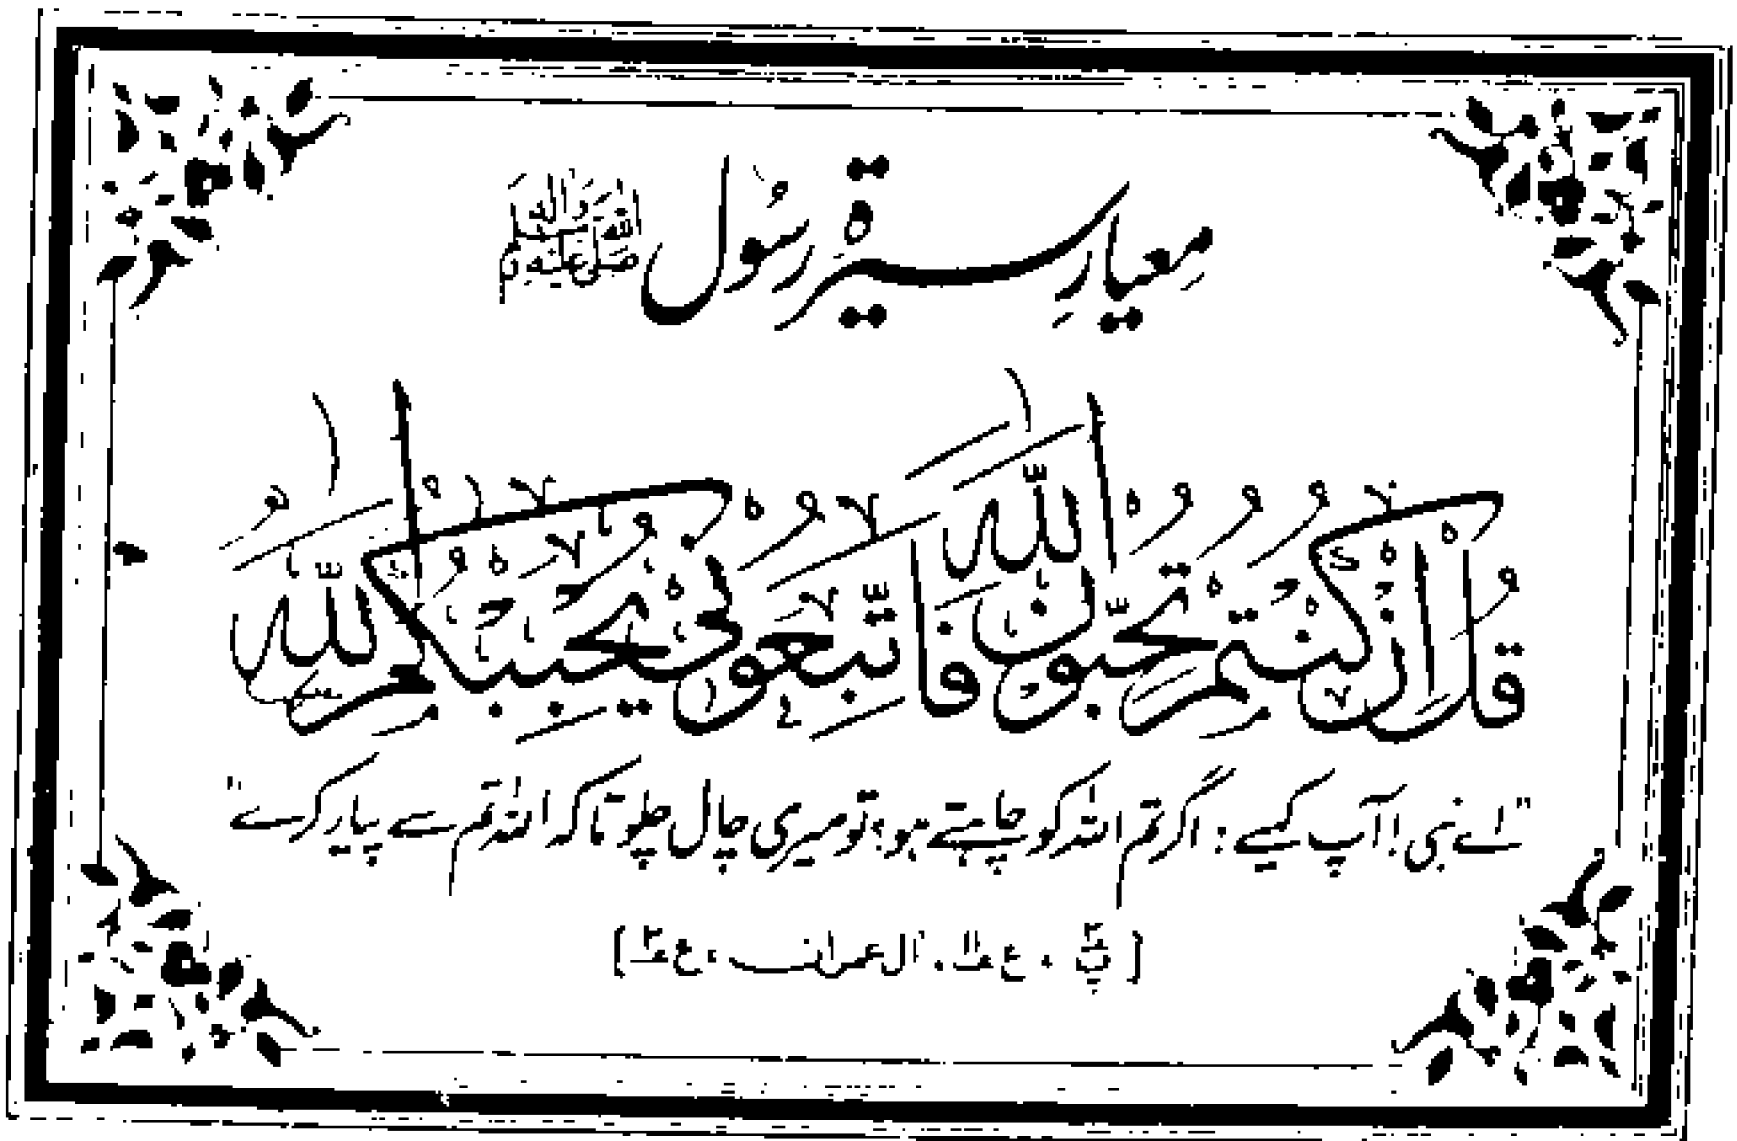 معیارِ سیرۃِ رسُول صَلَّی اللهُ عَلَیْہِ وَاٰلِہٖ وَسَلَّم
قُلْ اِنْ كُنْتُمْ تُحِبُّوْنَ اللّٰهَ فَاتَّبِعُوْنِیْ یُحْبِبْكُمُ اللّٰهُ
"اے نبی! آپ کہیے: اگر تم اللہ کو چاہتے ہو؟ تو میری چال چلو تاکہ اللہ تم سے پیار کرے"
[پ۳، ع۱۲، اٰل عمران، ع۴]